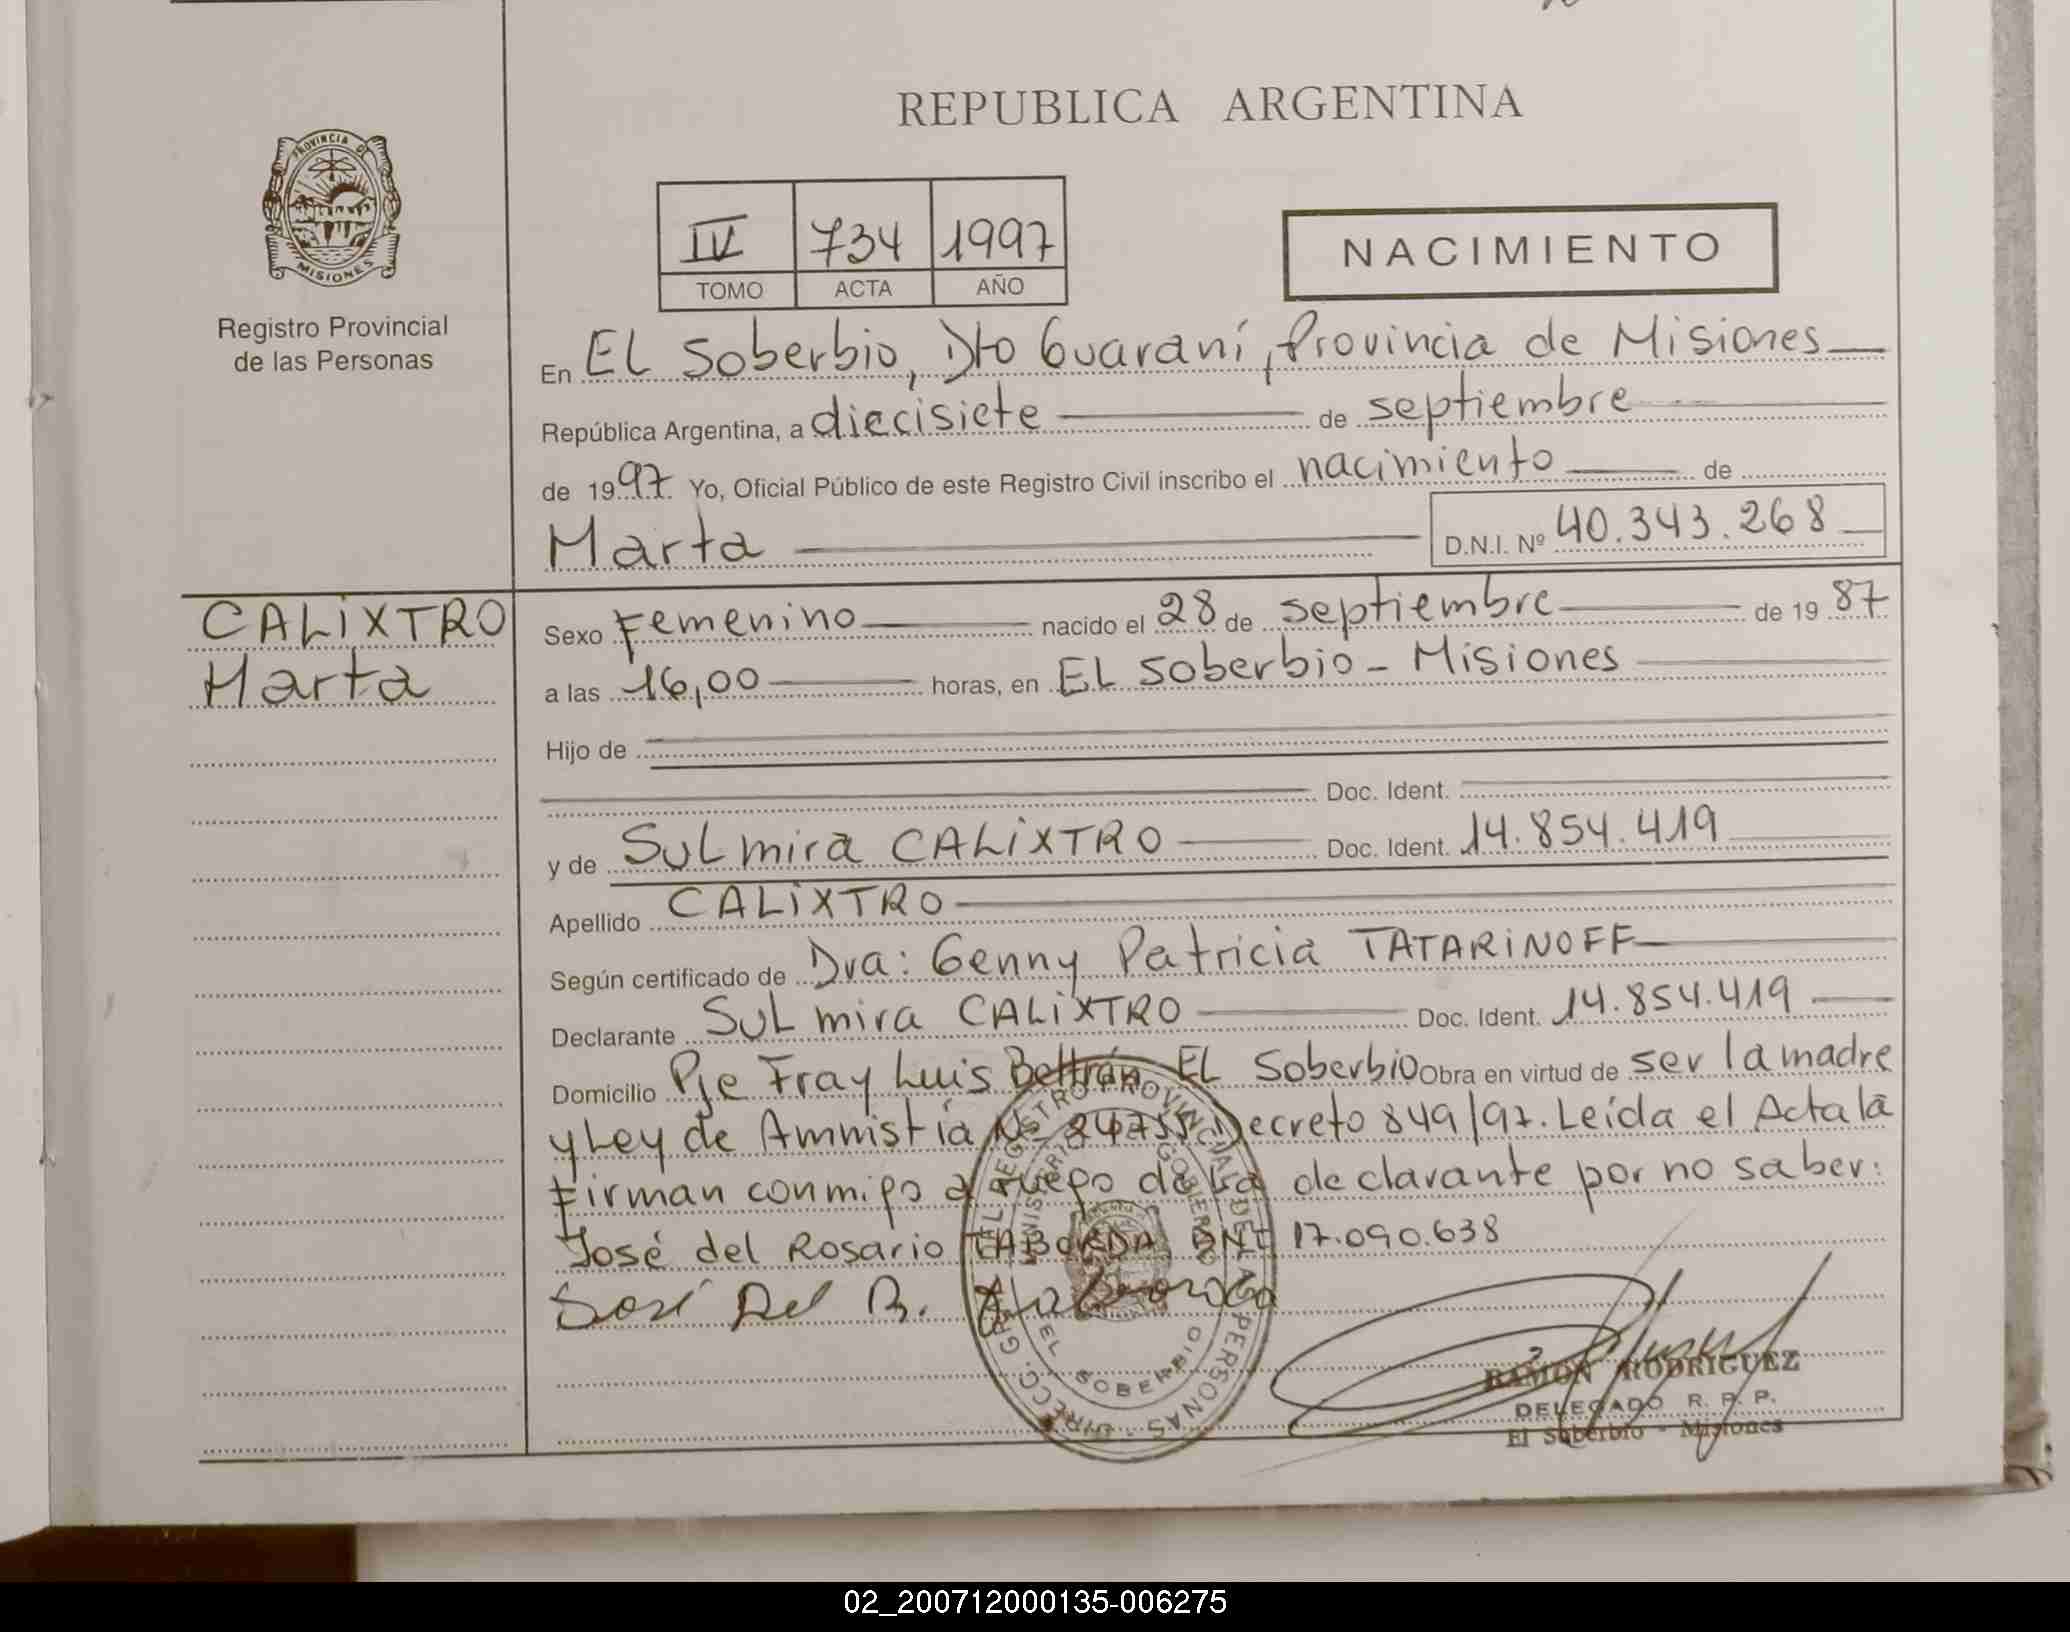 REPUBLICA ARGENTINA
PROVINCIA DE
MISIONES
Registro Provincial
de las Personas
IV 734 1997
TOMO ACTA AÑO
NACIMIENTO
En EL Soberbio, Dto Guaraní, Provincia de Misiones
República Argentina, a diecisiete de septiembre
de 1997 Yo, Oficial Público de este Registro Civil inscribo el nacimiento de
Marta D.N.I. Nº 40.343.268
CALiXTRO
Marta
Sexo Femenino nacido el 28 de septiembre de 1987
a las 16,00 horas, en EL Soberbio - Misiones
Hijo de
Doc. Ident.
y de SuLmira CALiXTRO Doc. Ident. 14.854.419
Apellido CALiXTRO
Según certificado de Dra: Genny Patricia TATARiNOFF
Declarante SuLmira CALiXTRO Doc. Ident. 14.854.419
Domicilio Pje Fray Luis Beltrán EL Soberbio Obra en virtud de ser la madre
y Ley de Amnistía Nº 24755 Decreto 849/97. Leída el Acta la
Firman conmigo a ruego de la declarante por no saber:
José del Rosario TABORDA DNI 17.090.638
José Del R. Taborda
DIRECC. GRAL. DEL REGISTRO PROVINCIAL DE LAS PERSONAS
MINISTERIO GOBIERNO
EL SOBERBIO
RAMON RODRIGUEZ
DELEGADO R. P. P.
El Soberbio - Misiones
02_200712000135-006275